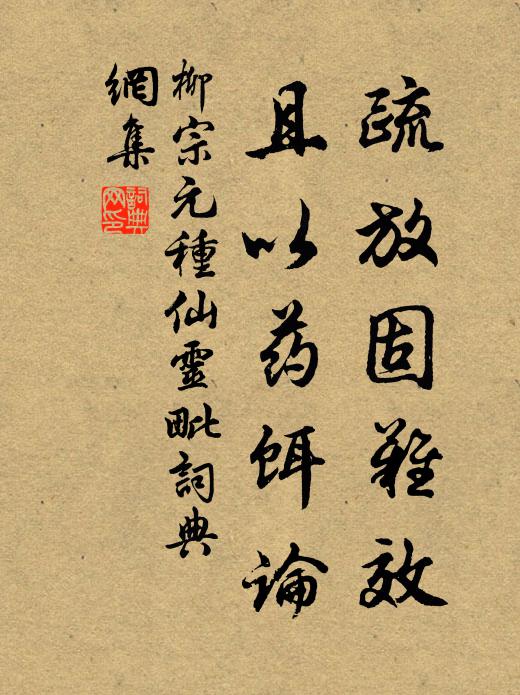 疏放固難效
且以药餌論
柳宗元種仙靈毗詞典
網集
詞典
網印